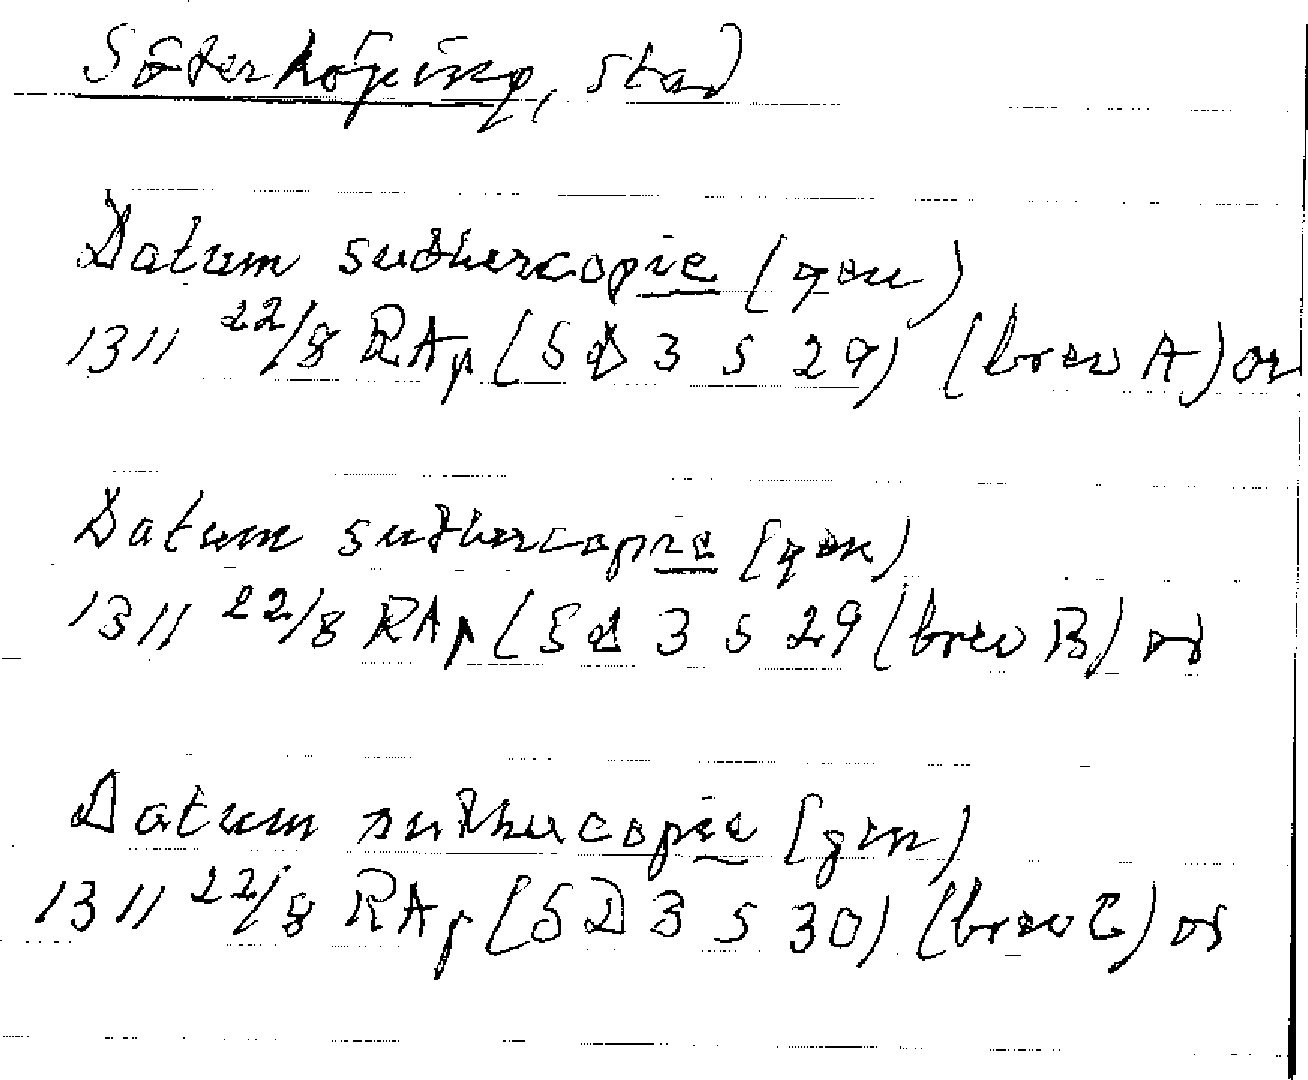 Söderköping, stad
Datum sudhercopie (gen)
1311 22/8 RAp (SD 3 s 29) (brev A) or
Datum sudhercopie (gen)
1311 22/8 RAp (SD 3 s 29 (brev B) or
Datum sudhercopie (gen)
1311 22/8 RAp (SD 3 s 30) (brev C) or